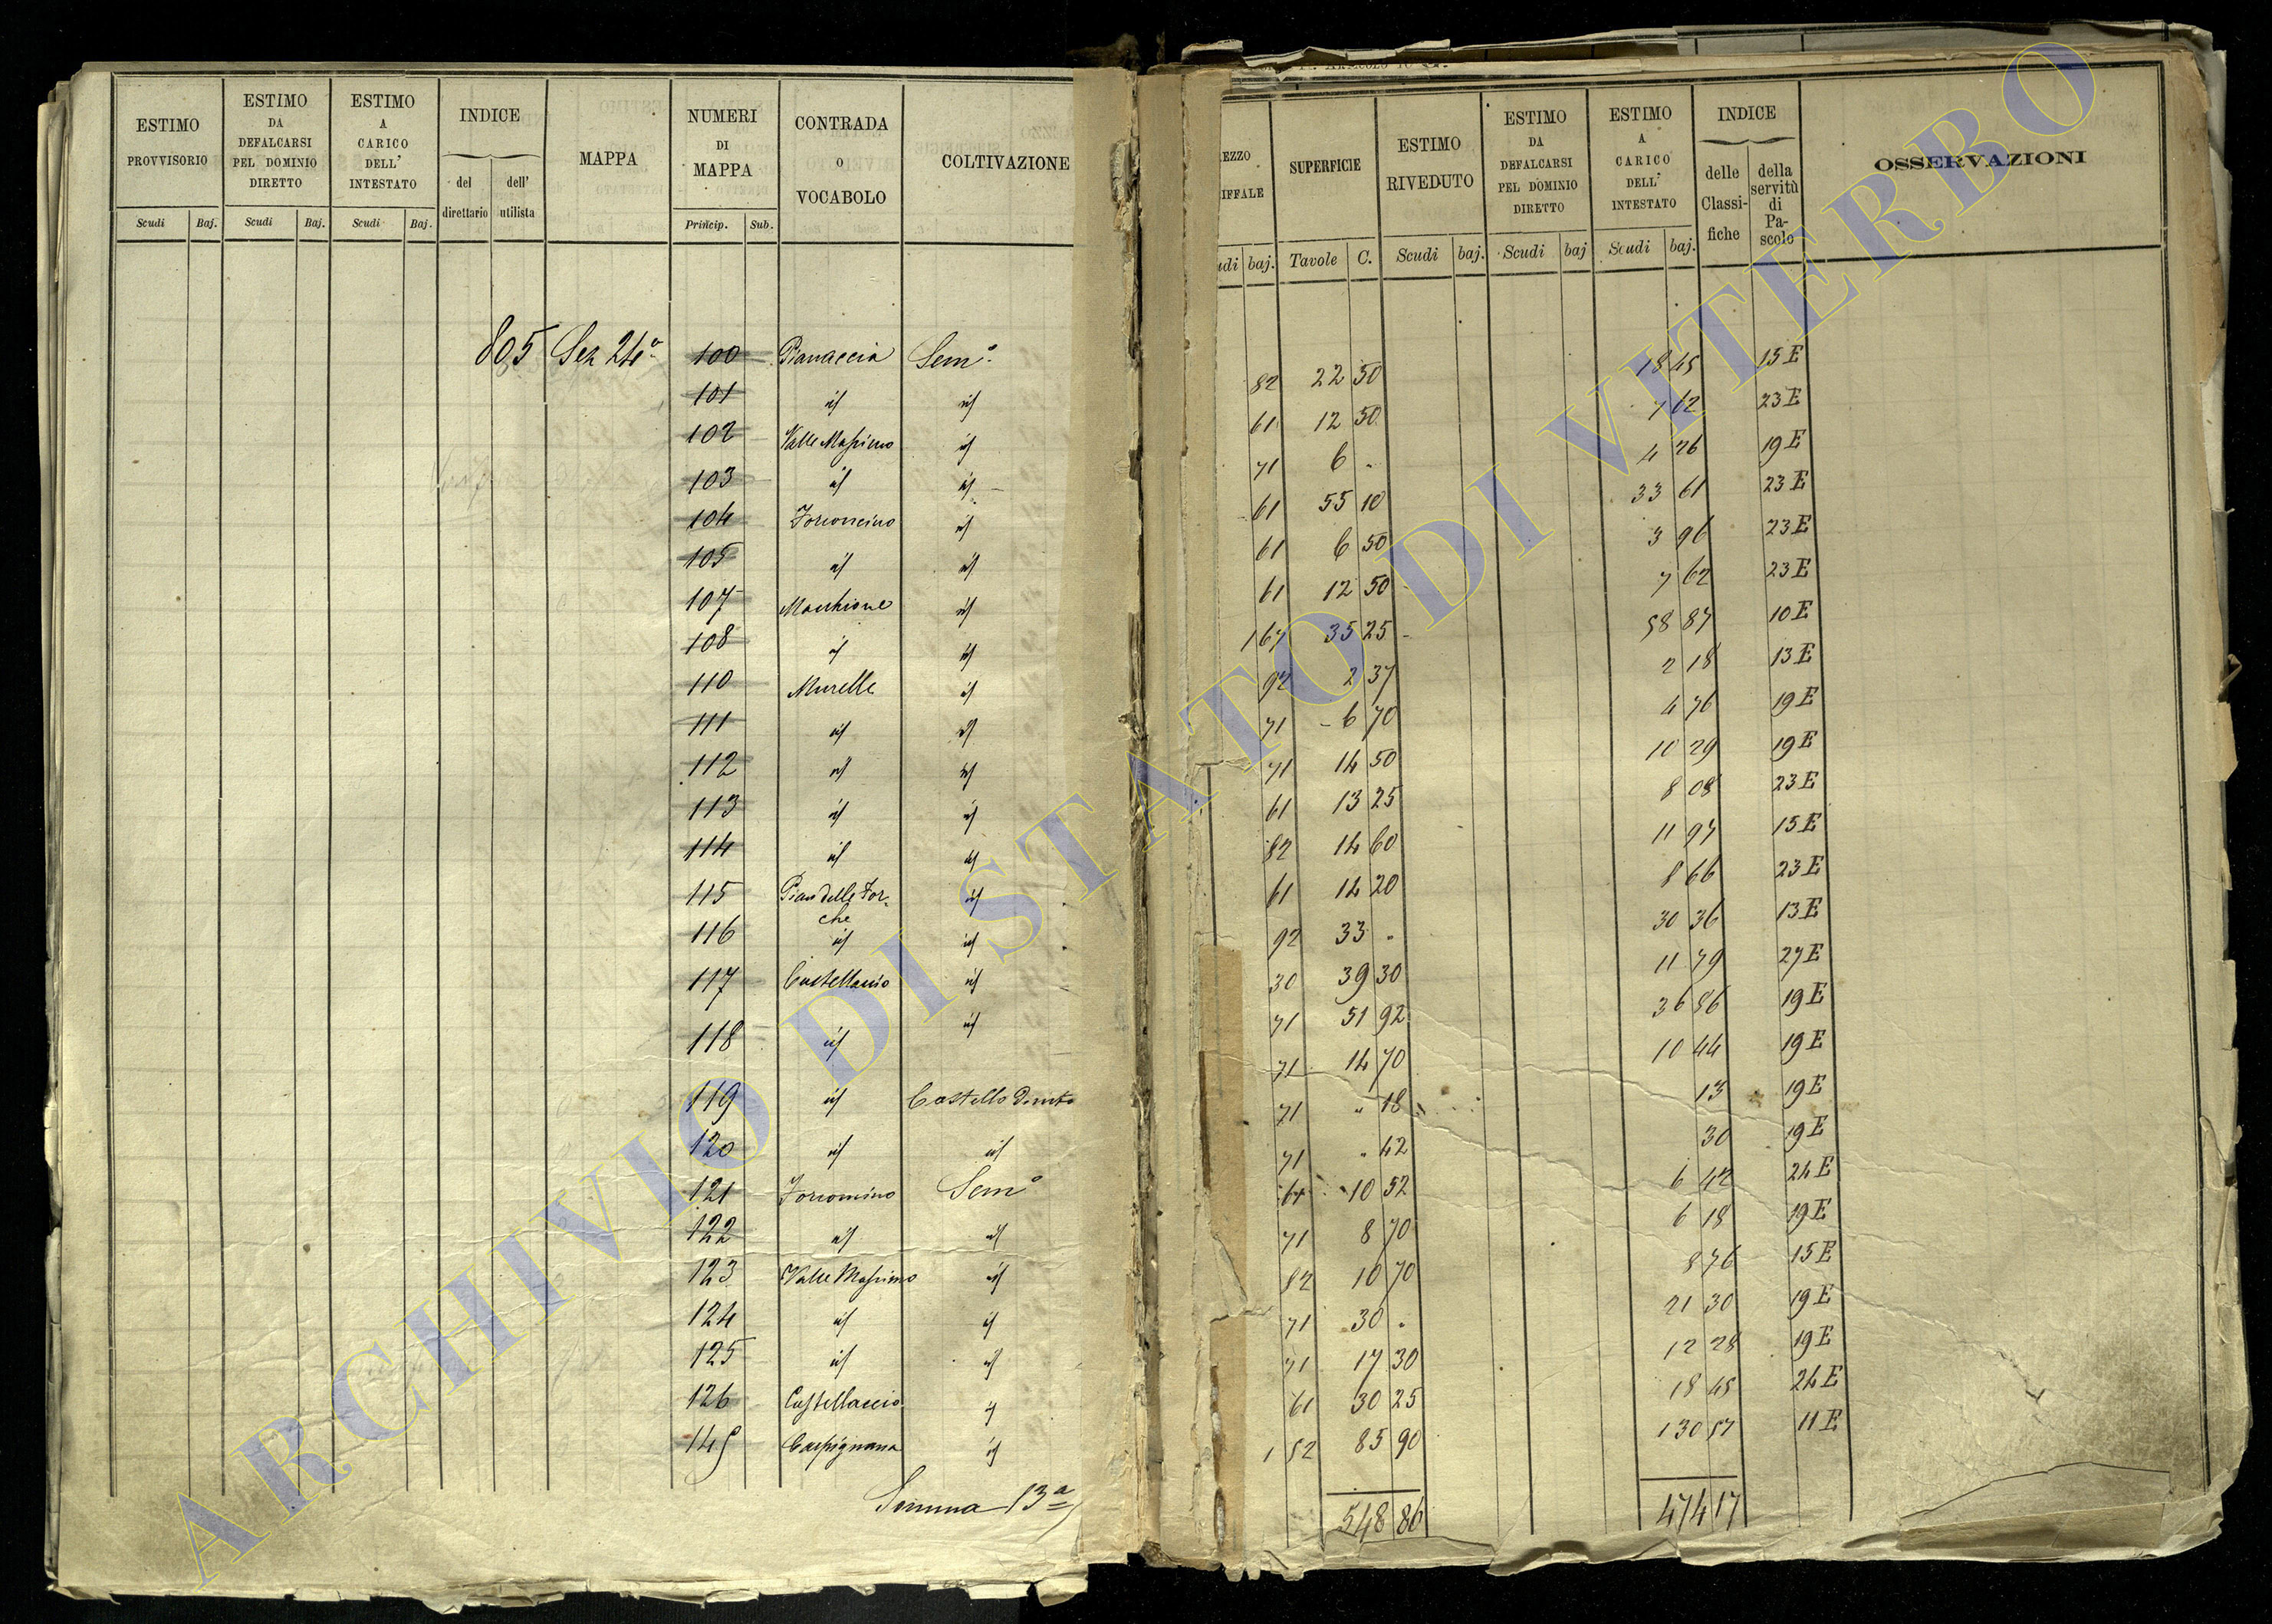 ESTIMO PROVVISORIO
ESTIMO DA DEFALCARSI PEL DOMINIO DIRETTO
ESTIMO A CARICO DELL' INTESTATO
INDICE
del direttario dell' utilista
MAPPA
NUMERI DI MAPPA
CONTRADA O VOCABOLO
COLTIVAZIONE
Scudi Baj. Scudi Baj. Scudi Baj. Princip. Sub.
805 Sez 24a 100 Panaccia Sem°
101 id id
102 Valle Massimo id
103 id id
104 id
105 id id
107 Macchione id
108 id id
110 Murelle id
111 id id
112 id id
113 id id
114 id id
115 Pian delle For- id
che
116 id id
117 Castellaccio id
118 id id
119 id Castello diruto
120 id id
121 Sem°
122 id id
123 Valle Massimo id
124 id id
125 id id
126 Castellaccio id
145 Carpignana id
Somma 13a
EZZO IFFALE
SUPERFICIE
ESTIMO RIVEDUTO
ESTIMO DA DEFALCARSI PEL DOMINIO DIRETTO
ESTIMO A CARICO DELL' INTESTATO
INDICE
delle Classifiche della servitù di Pascolo
OSSERVAZIONI
udi baj. Tavole C. Scudi baj. Scudi baj Scudi baj.
82 22 50 18 45 15 E
61 12 50 7 62 23 E
71 6 " 4 26 19 E
61 55 10 33 61 23 E
61 6 50 3 96 23 E
61 12 50 7 62 23 E
1 67 35 25 58 87 10 E
92 2 37 2 18 13 E
71 6 70 4 76 19 E
71 14 50 10 29 19 E
61 13 25 8 08 23 E
82 14 60 11 97 15 E
61 14 20 8 66 23 E
92 33 " 30 36 13 E
30 39 30 11 79 27 E
71 51 92 36 86 19 E
71 14 70 10 44 19 E
71 " 18 13 19 E
71 " 42 30 19 E
61 10 52 6 42 24 E
71 8 70 6 18 19 E
82 10 70 8 76 15 E
71 30 " 21 30 19 E
71 17 30 12 28 19 E
61 30 25 18 45 24 E
1 52 85 90 130 57 11 E
548 86 474 17
ARCHIVIO DI STATO DI VITERBO